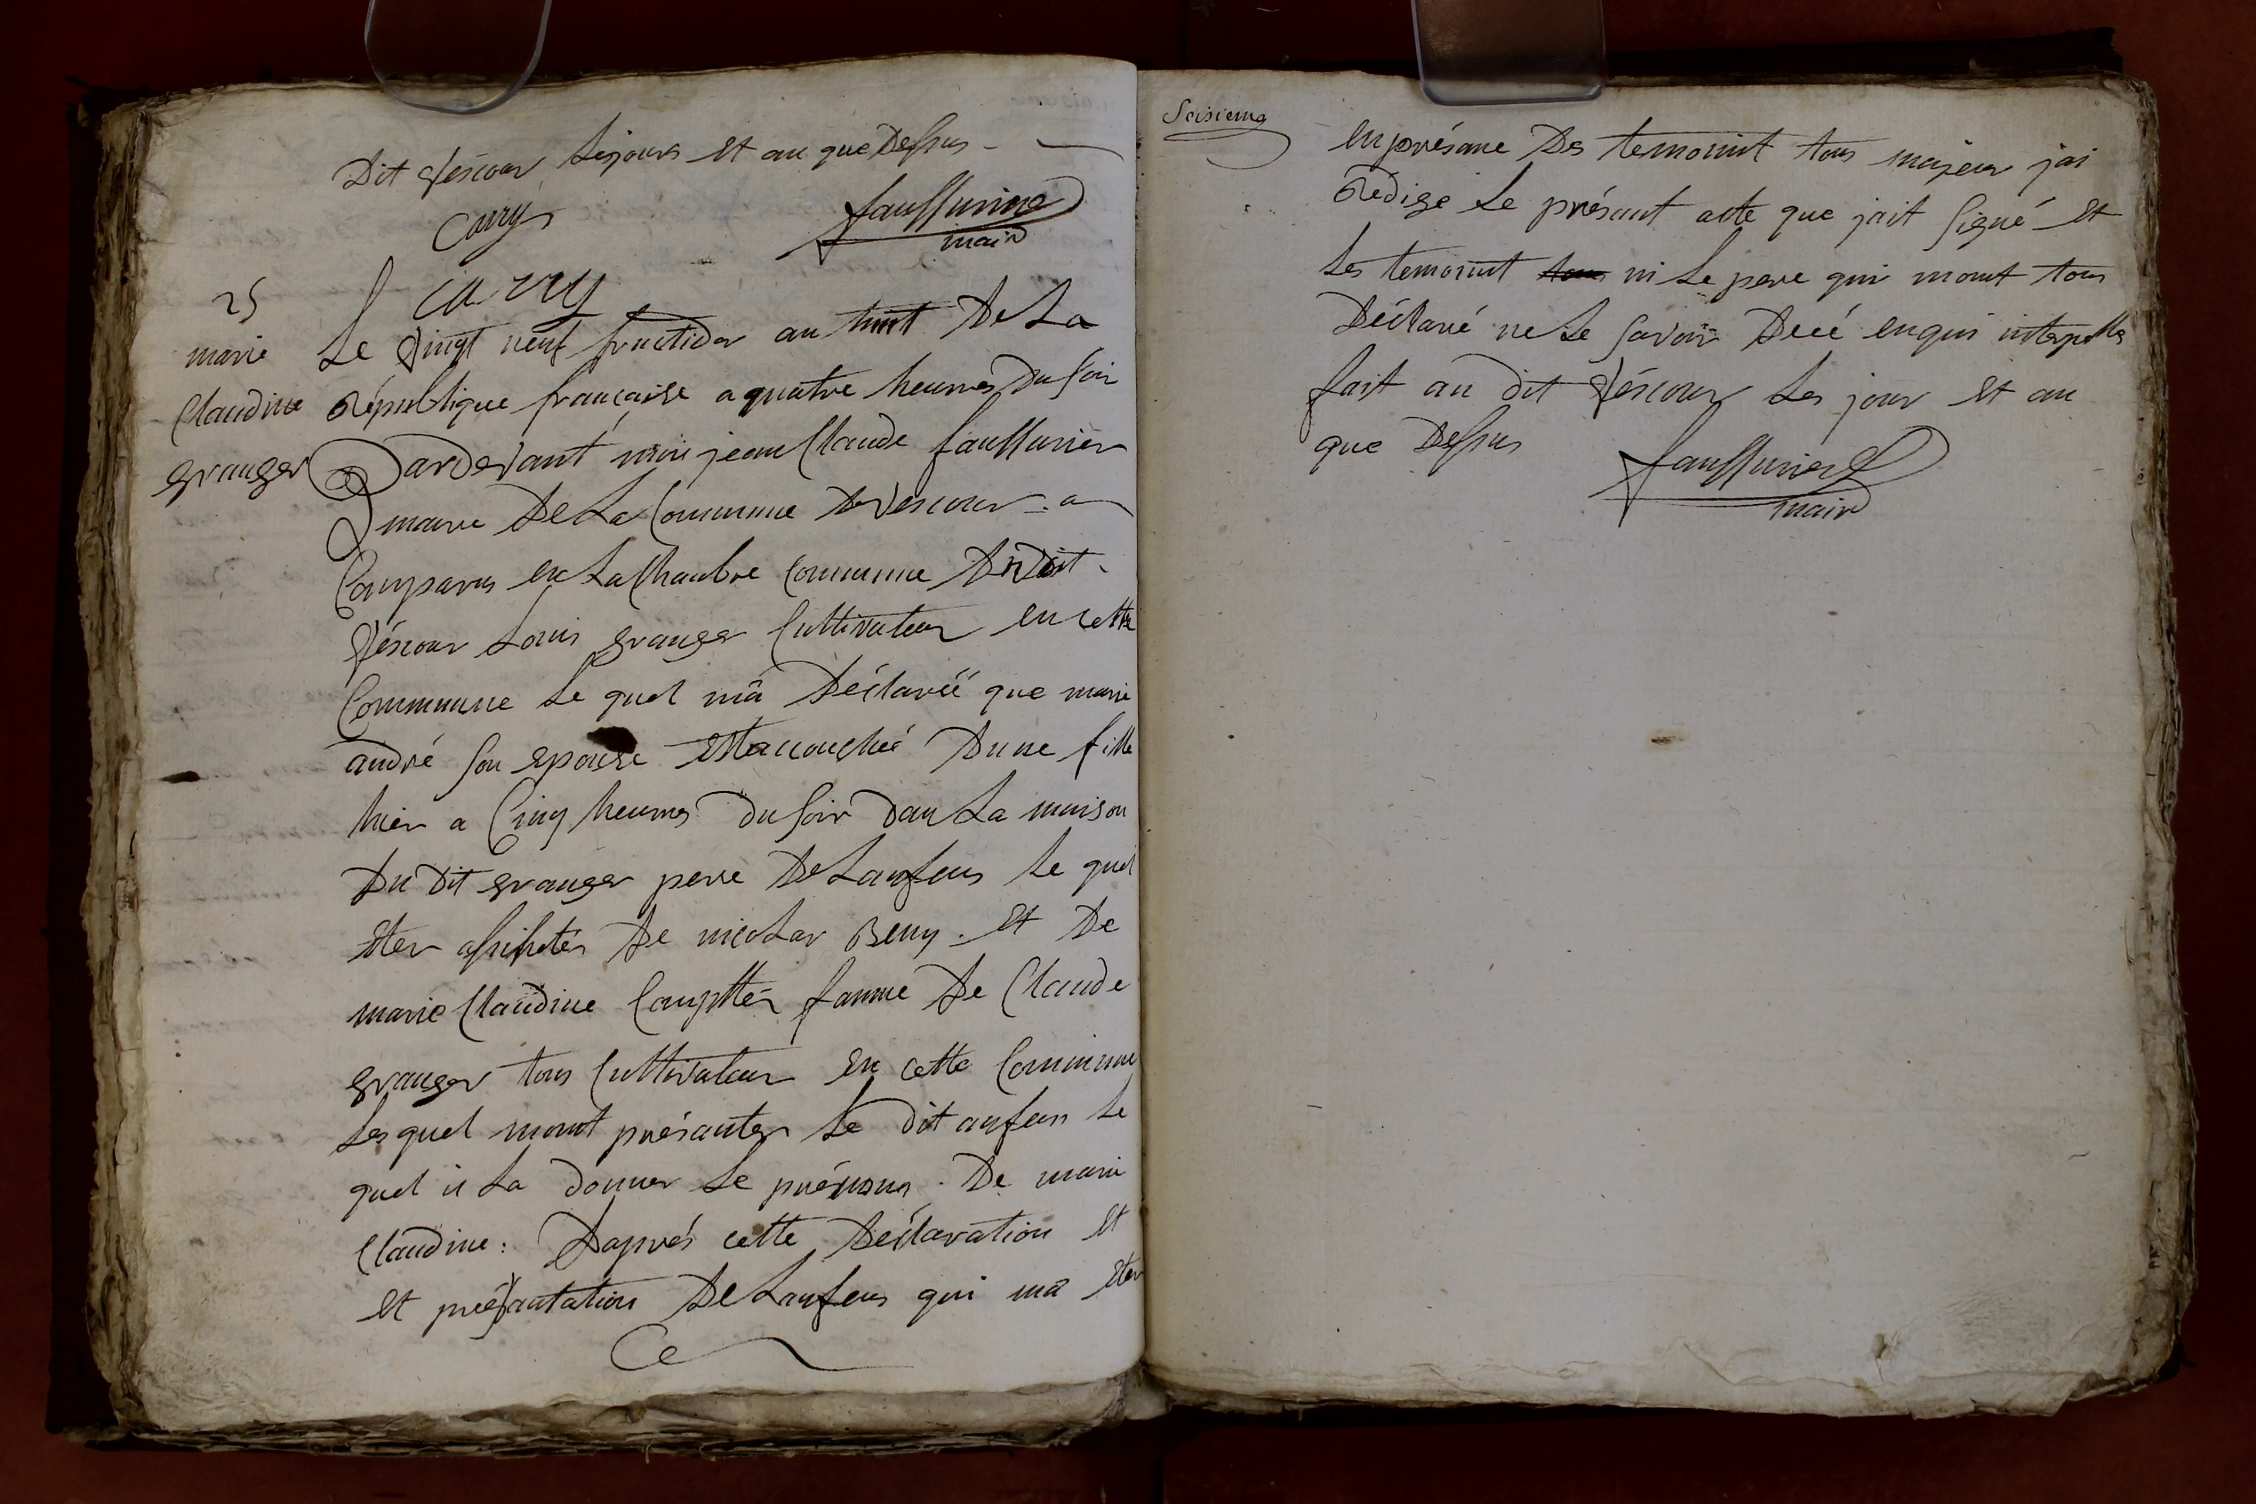 Dit Véscour Lesjours et an que Dessus
Carry
faussurier
maire
carry
25
marie
Claudine
granger
Le Vingt neuf fructidor an huit De La
République francaise a quatre heurres Du soir
Pardevant moi jean Claude faussurier
maire De La Commune De Vescour a
Comparus en La Chanbre Commune Du Dit
Véscour Louis granger Cultivateur en cette
Commune Le quel mâ Déclaréé que marie
andré son epouse Est accouchéé Dune fille
hier a Cinq heurres Du soir Dan La maison
Du Dit granger pere De Lanfens Le quel
Eter assisstér De nicolas Beny. et De
marie Claudine Comptter famme De Claude
granger tous Cultivateur en cette Commune
Les quel mont présanter Le Dit anfens Le
quel il La donner Le prénoms De marie
Claudine : Daprés cette Déclaration et
et présantation De Lanfens qui mâ Eter
Seisieme
en présane Des temoinit tous majeur jai
Rédige Le présant acte que jait signé et
Les temoinit tous ni Le pere qui mont tous
Déclaré ne Le savoir Decé enqui interpelle
fait au dit Véscour Les jour et an
que Dessus
faussurier
maire